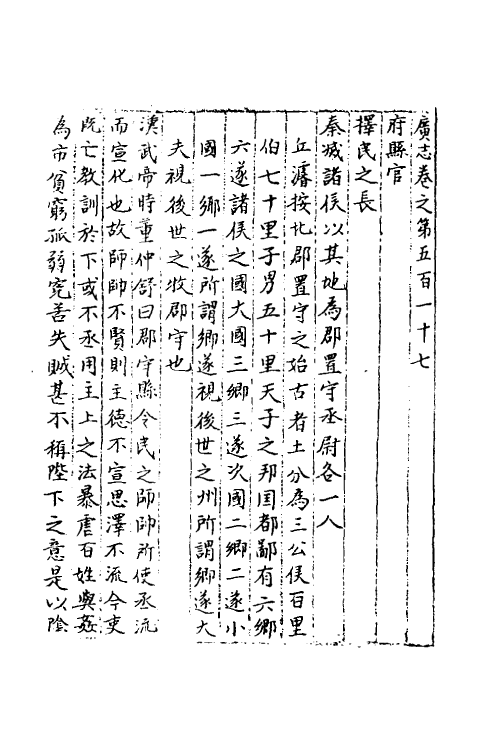 廣志卷之第五百一十七
府縣官
擇民之長
秦烕諸侯以其地為郡置守丞尉各一人
丘濬按北郡置守之始古者土分為三公侯百里
伯七十里子男五十里天子之邦囯都鄙有六鄉
六遂諸侯之國大國三鄉三遂次國二鄉二遂小
國一鄉一遂所謂鄉遂視後世之州所謂鄉遂大
夫視後世之牧郡守也
漢武帝時董仲舒曰郡守縣令民之師帥所使丞流
而宣化也故師帥不賢則主徳不宣思澤不流今吏
旣亡教訓於下或不丞用主上之法暴虐百姓與姦
為市貧窮孤弱寃善失賊甚不稱陛下之意是以陰